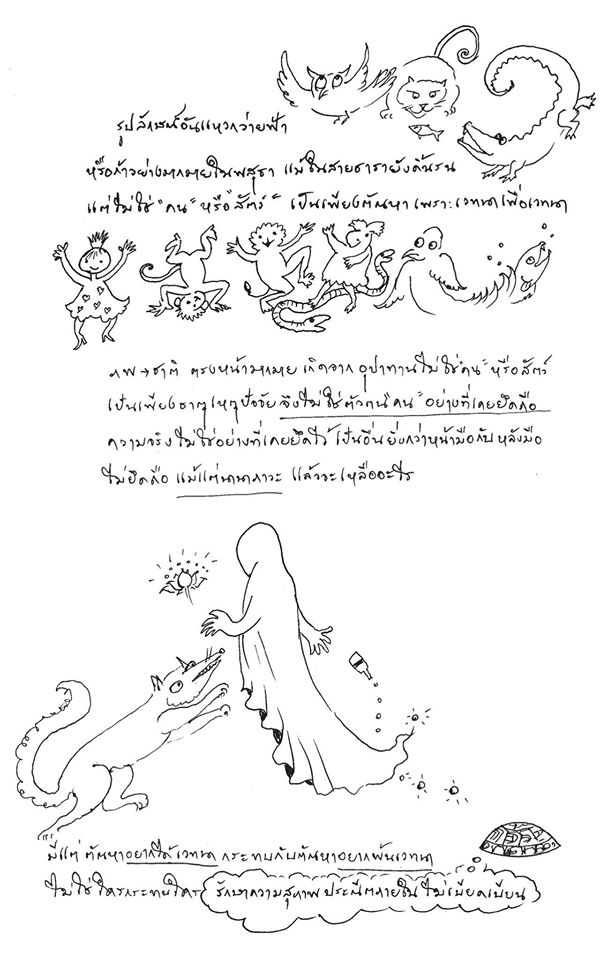 รูปลักษณ์อันแหวกว่ายฟ้า
หรือก้าวย่างมากมายในพสุธา แม้ในสายธารายังดิ้นรน
แต่ไม่ใช่ "คน" หรือ "สัตว์" เป็นเพียงตัณหา เพราะเวทนาเพื่อเวทนา
ภพ → ชาติ ตรงหน้ามากมาย เกิดจาก อุปาทาน ไม่ใช่ "คน" หรือสัตว์
เป็นเพียงธาตุ เหตุปัจจัย จึงไม่ใช่ตัวตน "คน" อย่างที่เคยยึดถือ
ความจริงไม่ใช่อย่างที่เคยยึดไว้ เป็นอื่นยิ่งกว่าหน้ามือกับหลังมือ
ไม่ยึดถือ แม้แต่นานาภาวะ แล้วจะเหลืออะไร
มีแต่ ตัณหาอยากได้เวทนา กระทบกับตัณหาอยากพ้นเวทนา
ไม่ใช่ใครกระทบใคร รักษาความสุภาพ ประณีตภายใน ไม่เบียดเบียน